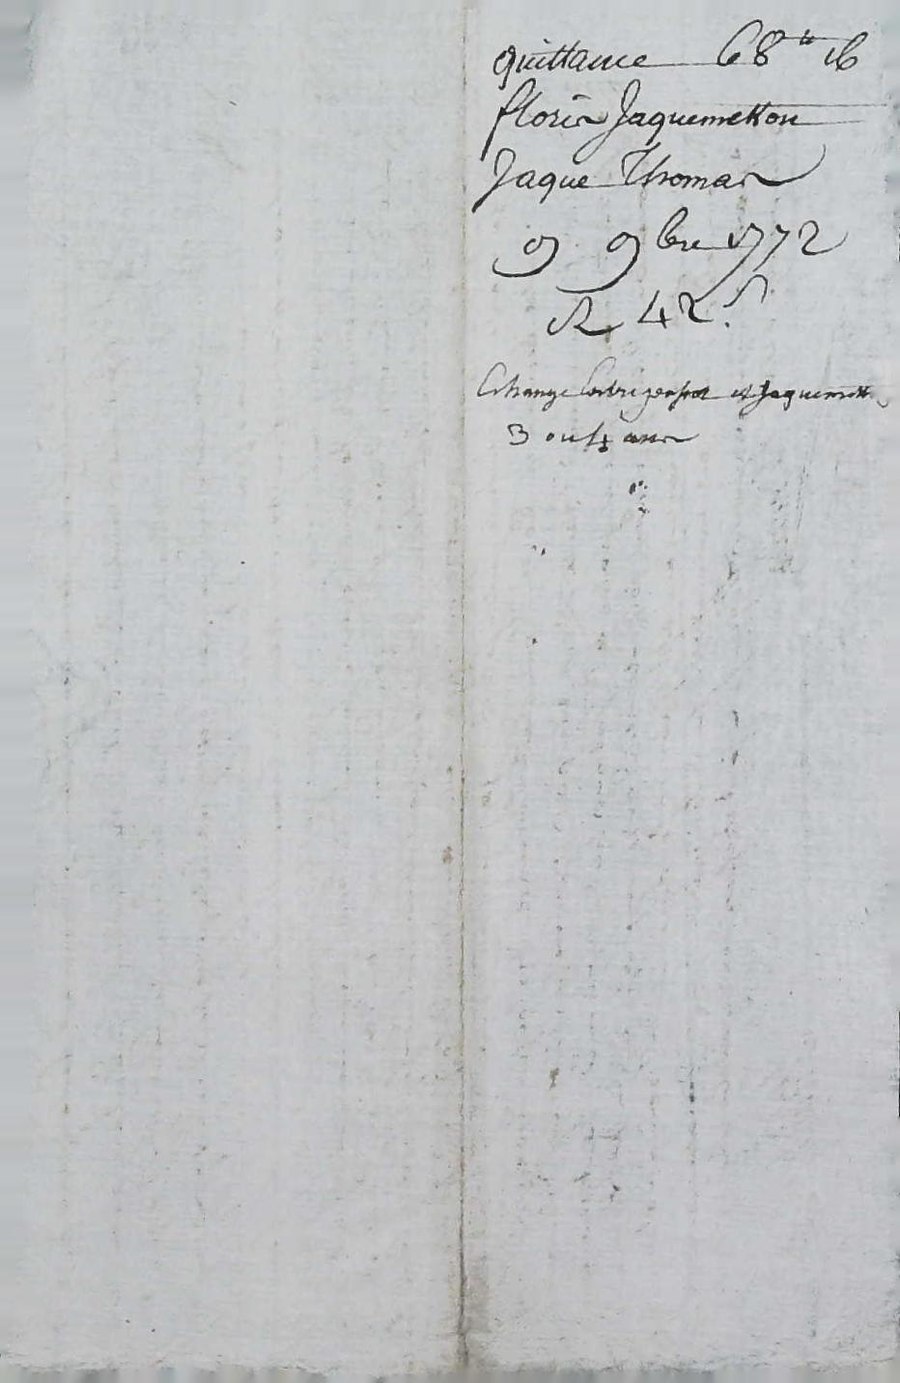 quittance 68 tt 16
floris Jaquemetton
Jaque Thomas
9 9bre 1772
R 42 s
Echange et Jaquemett
3 ou 4 ans